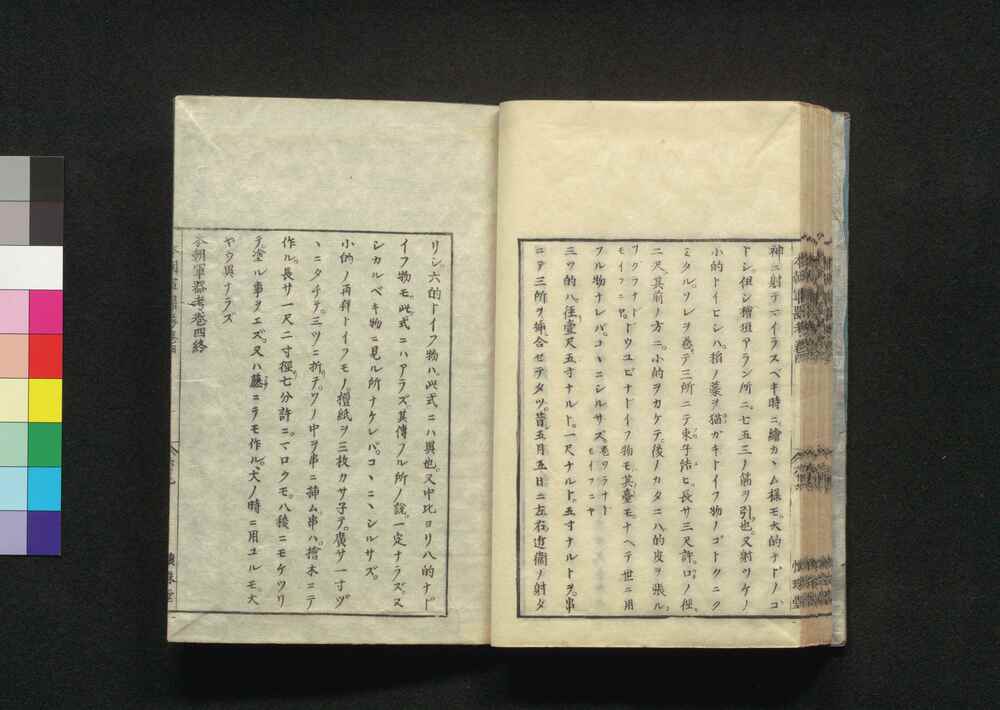 神ニ射テマイラスベキ時ニ繪カヽム様モ大的ナドノゴ
トシ。但シ檜垣アラン所ニ。七五三ノ
小的トイヒシハ。稻ノ藁ヲ猫ガキトイフ物ノゴトクニク
ミタルヲ
二尺。其前ノ方ニ。小的ヲカケテ。後ノカタニハ的皮ヲ張ル
イフ物モ。其臺モナヘテ世ニ用
フル物ナレバ。コヽニシルサズ。
三ツ的ハ。徑壹尺五寸ナルト。一尺ナルト。五寸ナルトヲ。串
ニテ三所ヲ挿合セテタツ。皆五月五日ニ左右近衞ノ射タ
リシ。六的トイフ物ハ。此式ニハ異也。又中比ヨリ八的ナド
イフ物モ。此式ニハアラズ。其傳フル所ノ說。一定ナラズ。又
シカルベキ物ニ見ル所ナケレバ。コヽニヽシルサズ。
小的ノ再拜トイフモノ。檀紙ヲ三枚カサ子テ。廣サ一寸ヅ
ヽニタチテ。三ツニ折テ。ソノ中ヲ串ニ挿ム。串ハ。檜木ニテ
作ル。長サ一尺二寸。徑七分許ニマロクモ。八稜ニモケヅリ
テ。塗ル事ヲエズ。又ハ藤ニテモ作ル。犬ノ時ニ用ユルモ。大
ヤウ異ナラズ
本朝軍器考巻四終